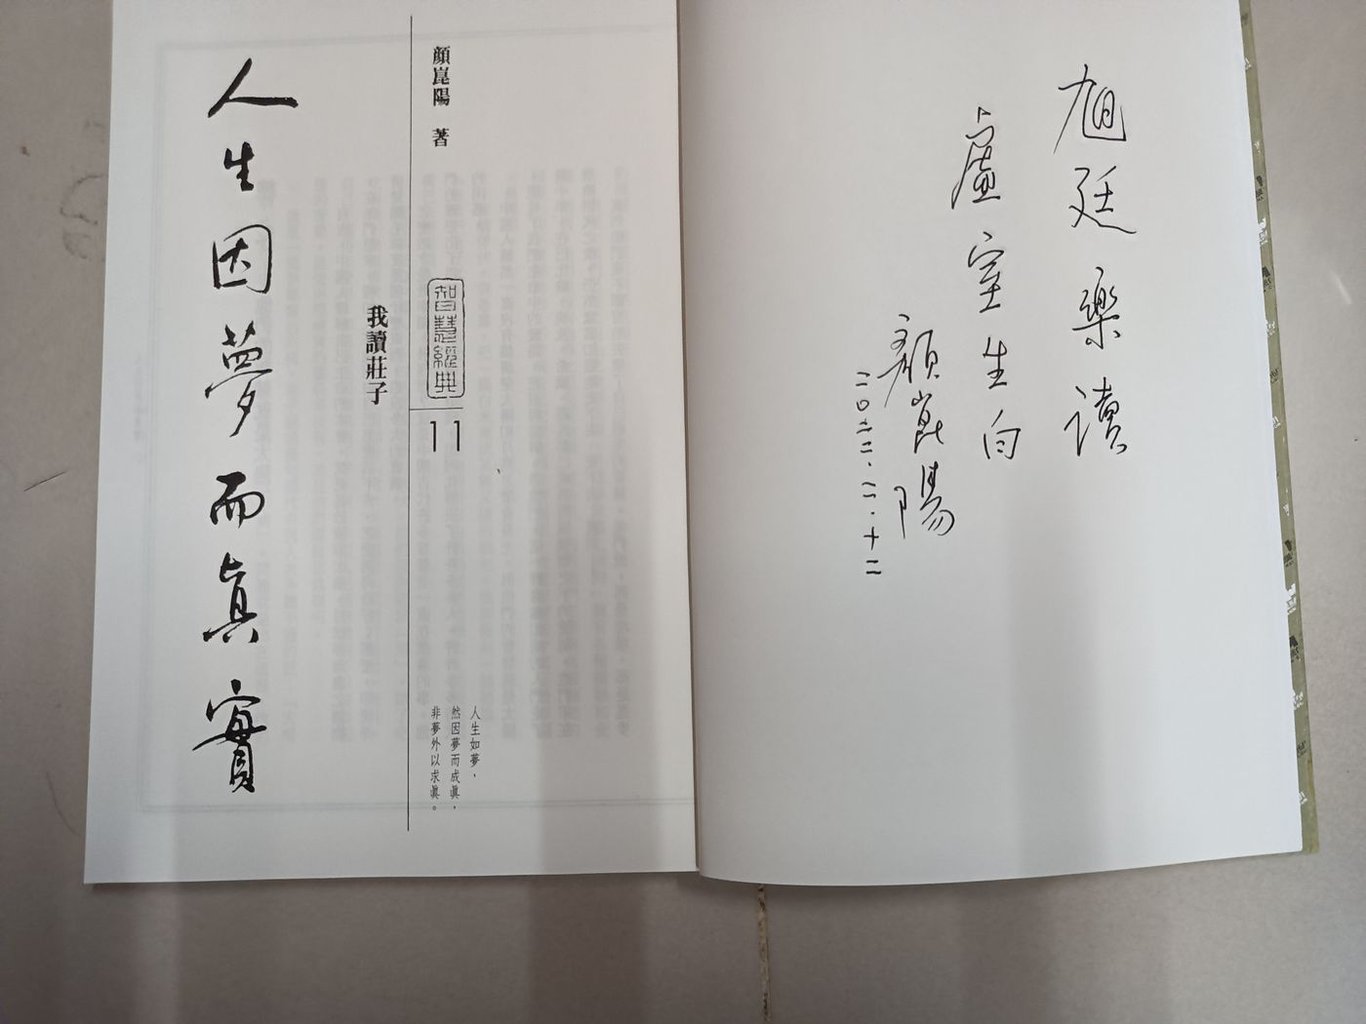 旭廷樂讀
虛室生白
顏崑陽
二〇二二.二.十二
顏崑陽 著
智慧經典
11
我讀莊子
人生因夢而真實
人生如夢，
然因夢而成真，
非夢外以求真。